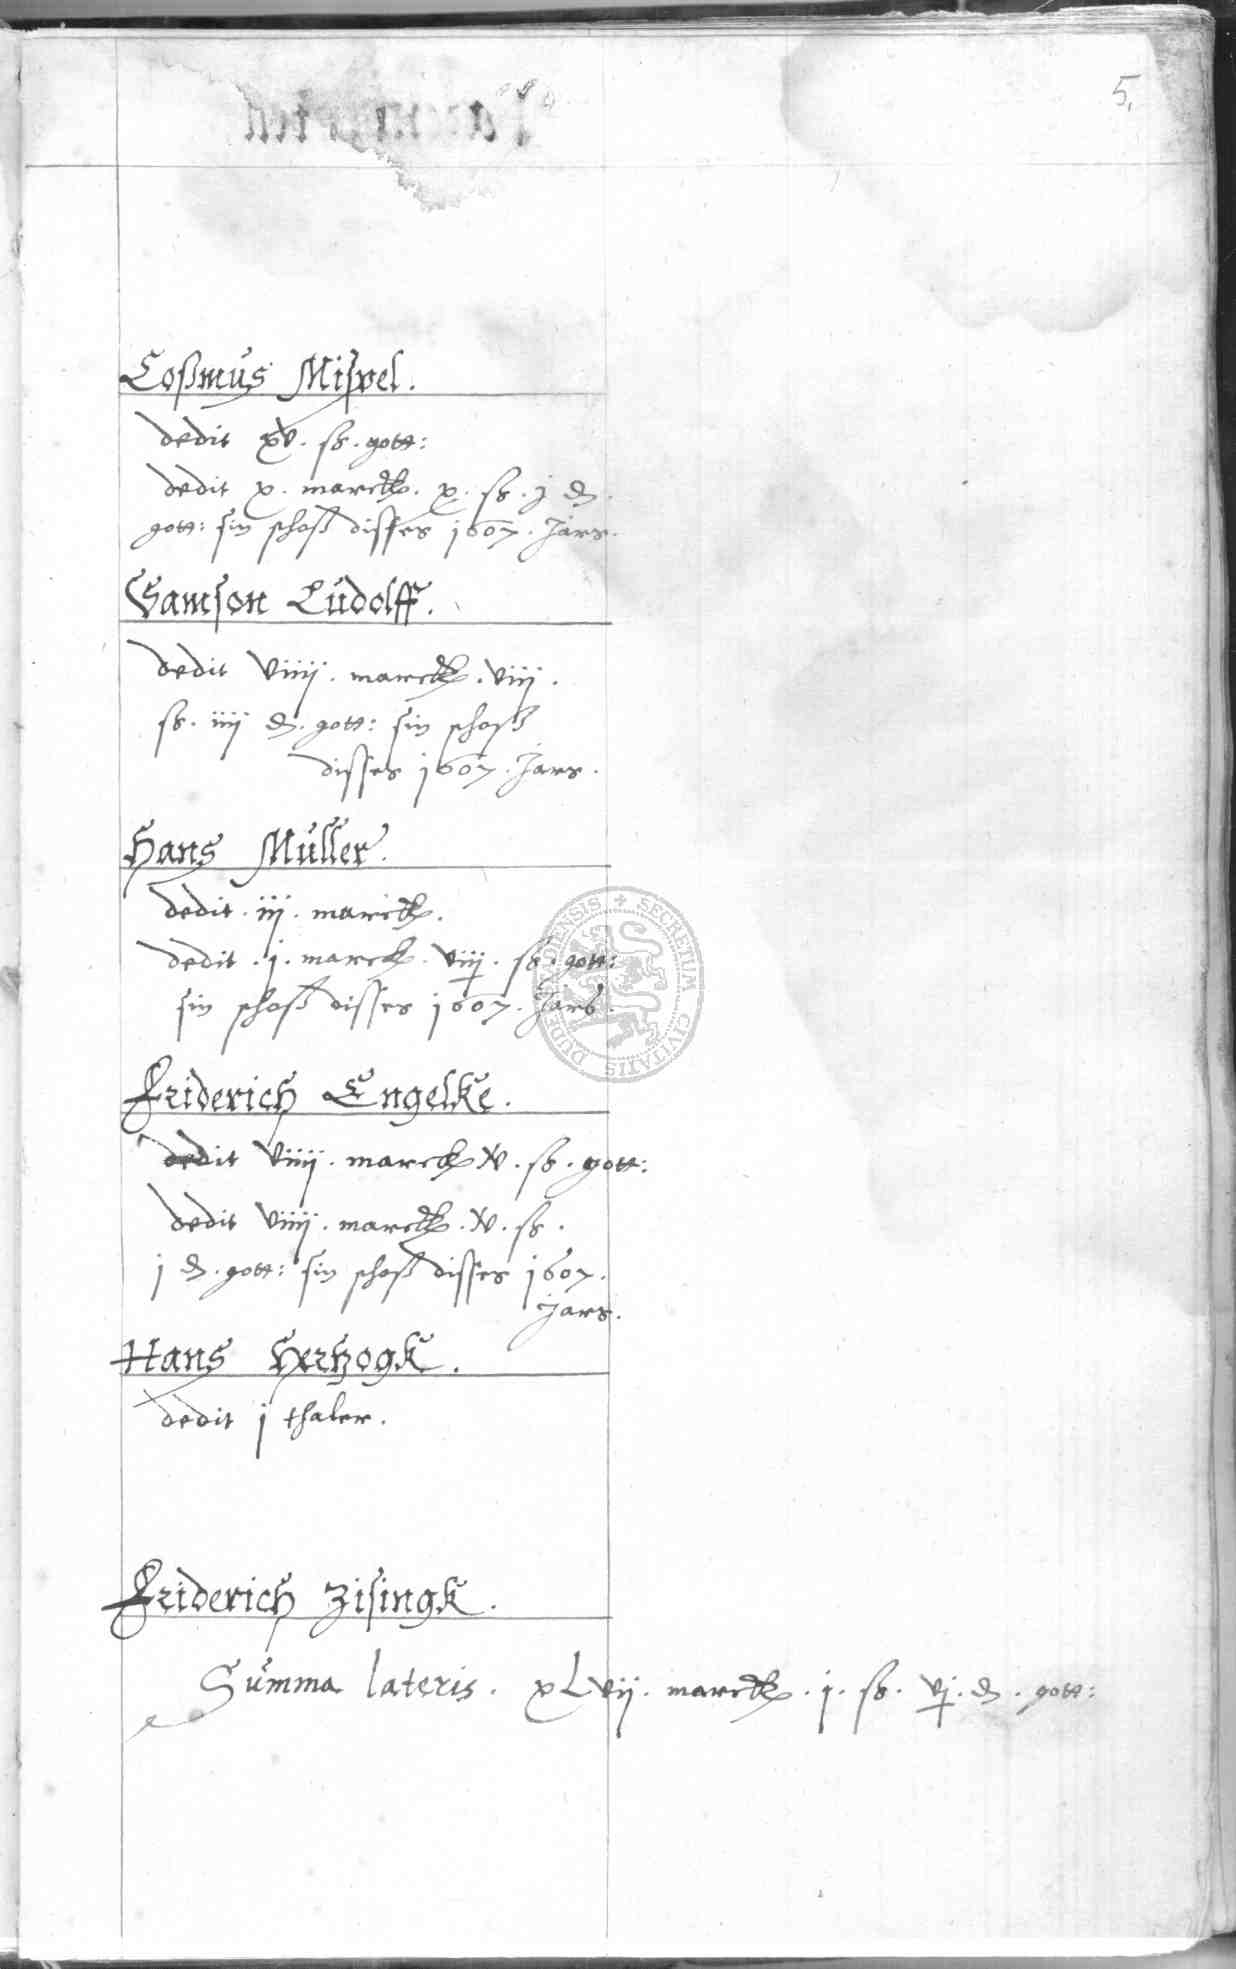 5.
Coßmus Mispel.
dedit xv. ß. gott:
dedit x. marck. x. ß. j ₰.
gott: sin schoß disses 1607. Jars.
Samson Ludolff.
dedit viiij. marck. viij.
ß. iiij ₰. gott: sin schoß
disses 1607. Jars.
Hans Müller.
dedit. iij. marck.
dedit. j. marck. viiij. ß. gott:
sin schoß disses 1607. Jars.
Friderich Engelke.
dedit viiij. marck xv. ß. gott:
dedit viiij. marck. xv. ß.
j ₰. gott: sin schoß disses 1607.
Jars.
Hans Hertzogk.
dedit j thaler.
Friderich Zisingk.
Summa lateris. xLvij. marck. j. ß. vj. ₰. gott:
SECRETUM CIVITATIS DUDERSTADENSIS